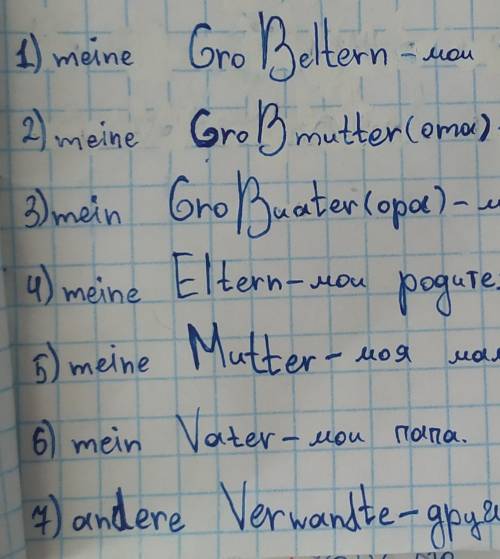 1) meine Großeltern - мои
2) meine Großmutter (oma) -
3) mein Großuater (opa) - м
4) meine Eltern - мои родите
5) meine Mutter - моя мам
6) mein Vater - мои папа.
7) andere Verwandte - друга